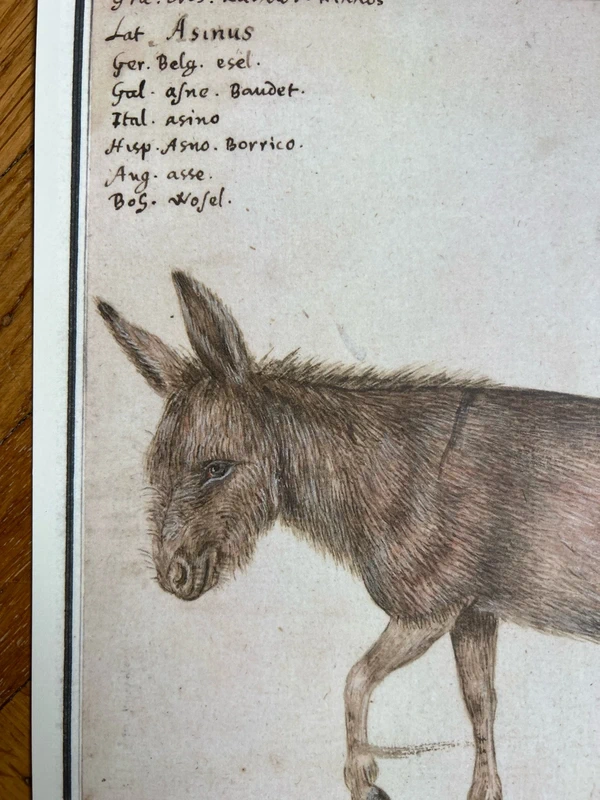 Lat. Asinus
Ger. Belg. esel.
Gal. asne. Baudet.
Ital. asino
Hisp. Asno. Borrico.
Ang. asse.
Boh. Wosel.